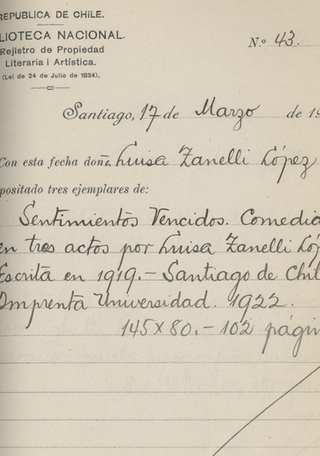 REPUBLICA DE CHILE.
LIOTECA NACIONAL.
Rejistro de Propiedad
Literaria i Artística.
(Lei de 24 de Julio de 1834).
N.º 43.
Santiago, 17 de Marzo de 19
Con esta fecha doña Luisa Zanelli López
positado tres ejemplares de:
Sentimientos Vencidos. Comedia
en tres actos por Luisa Zanelli Lóp
Escrita en 1919.- Santiago de Chil
Imprenta Universidad. 1922.
145X80.- 102 págin